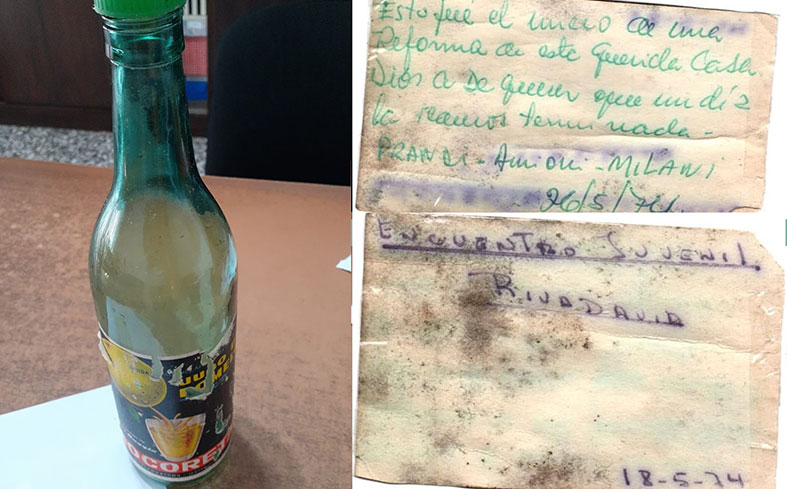 JUGO
POME
OCORET
Esto fué el inicio de una
Reforma de esta Querida Casa
Dios a de querer que un día
la veamos terminada-
PRANDI - Amioni - MILANI
26/5/74
ENCUENTRO JUVENIL
RIVADAVIA
18-5-74